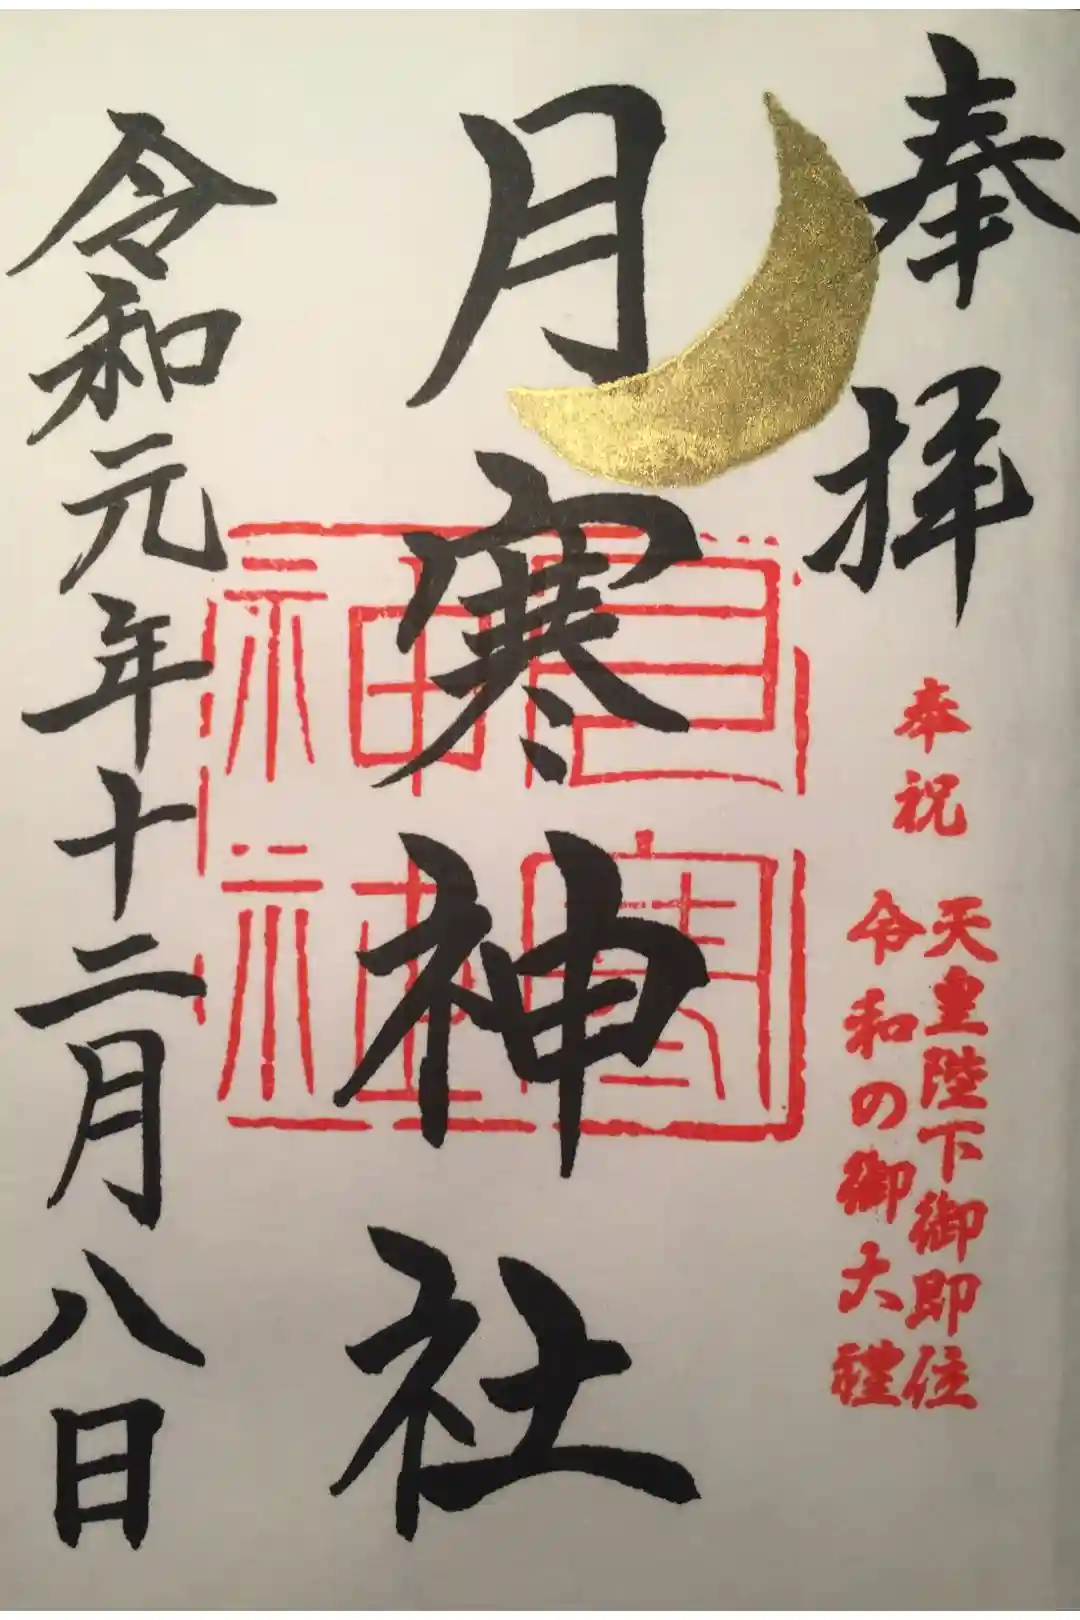 奉拝
奉祝
天皇陛下御即位
令和の御大禮
月寒神社
月寒神社
令和元年十二月八日